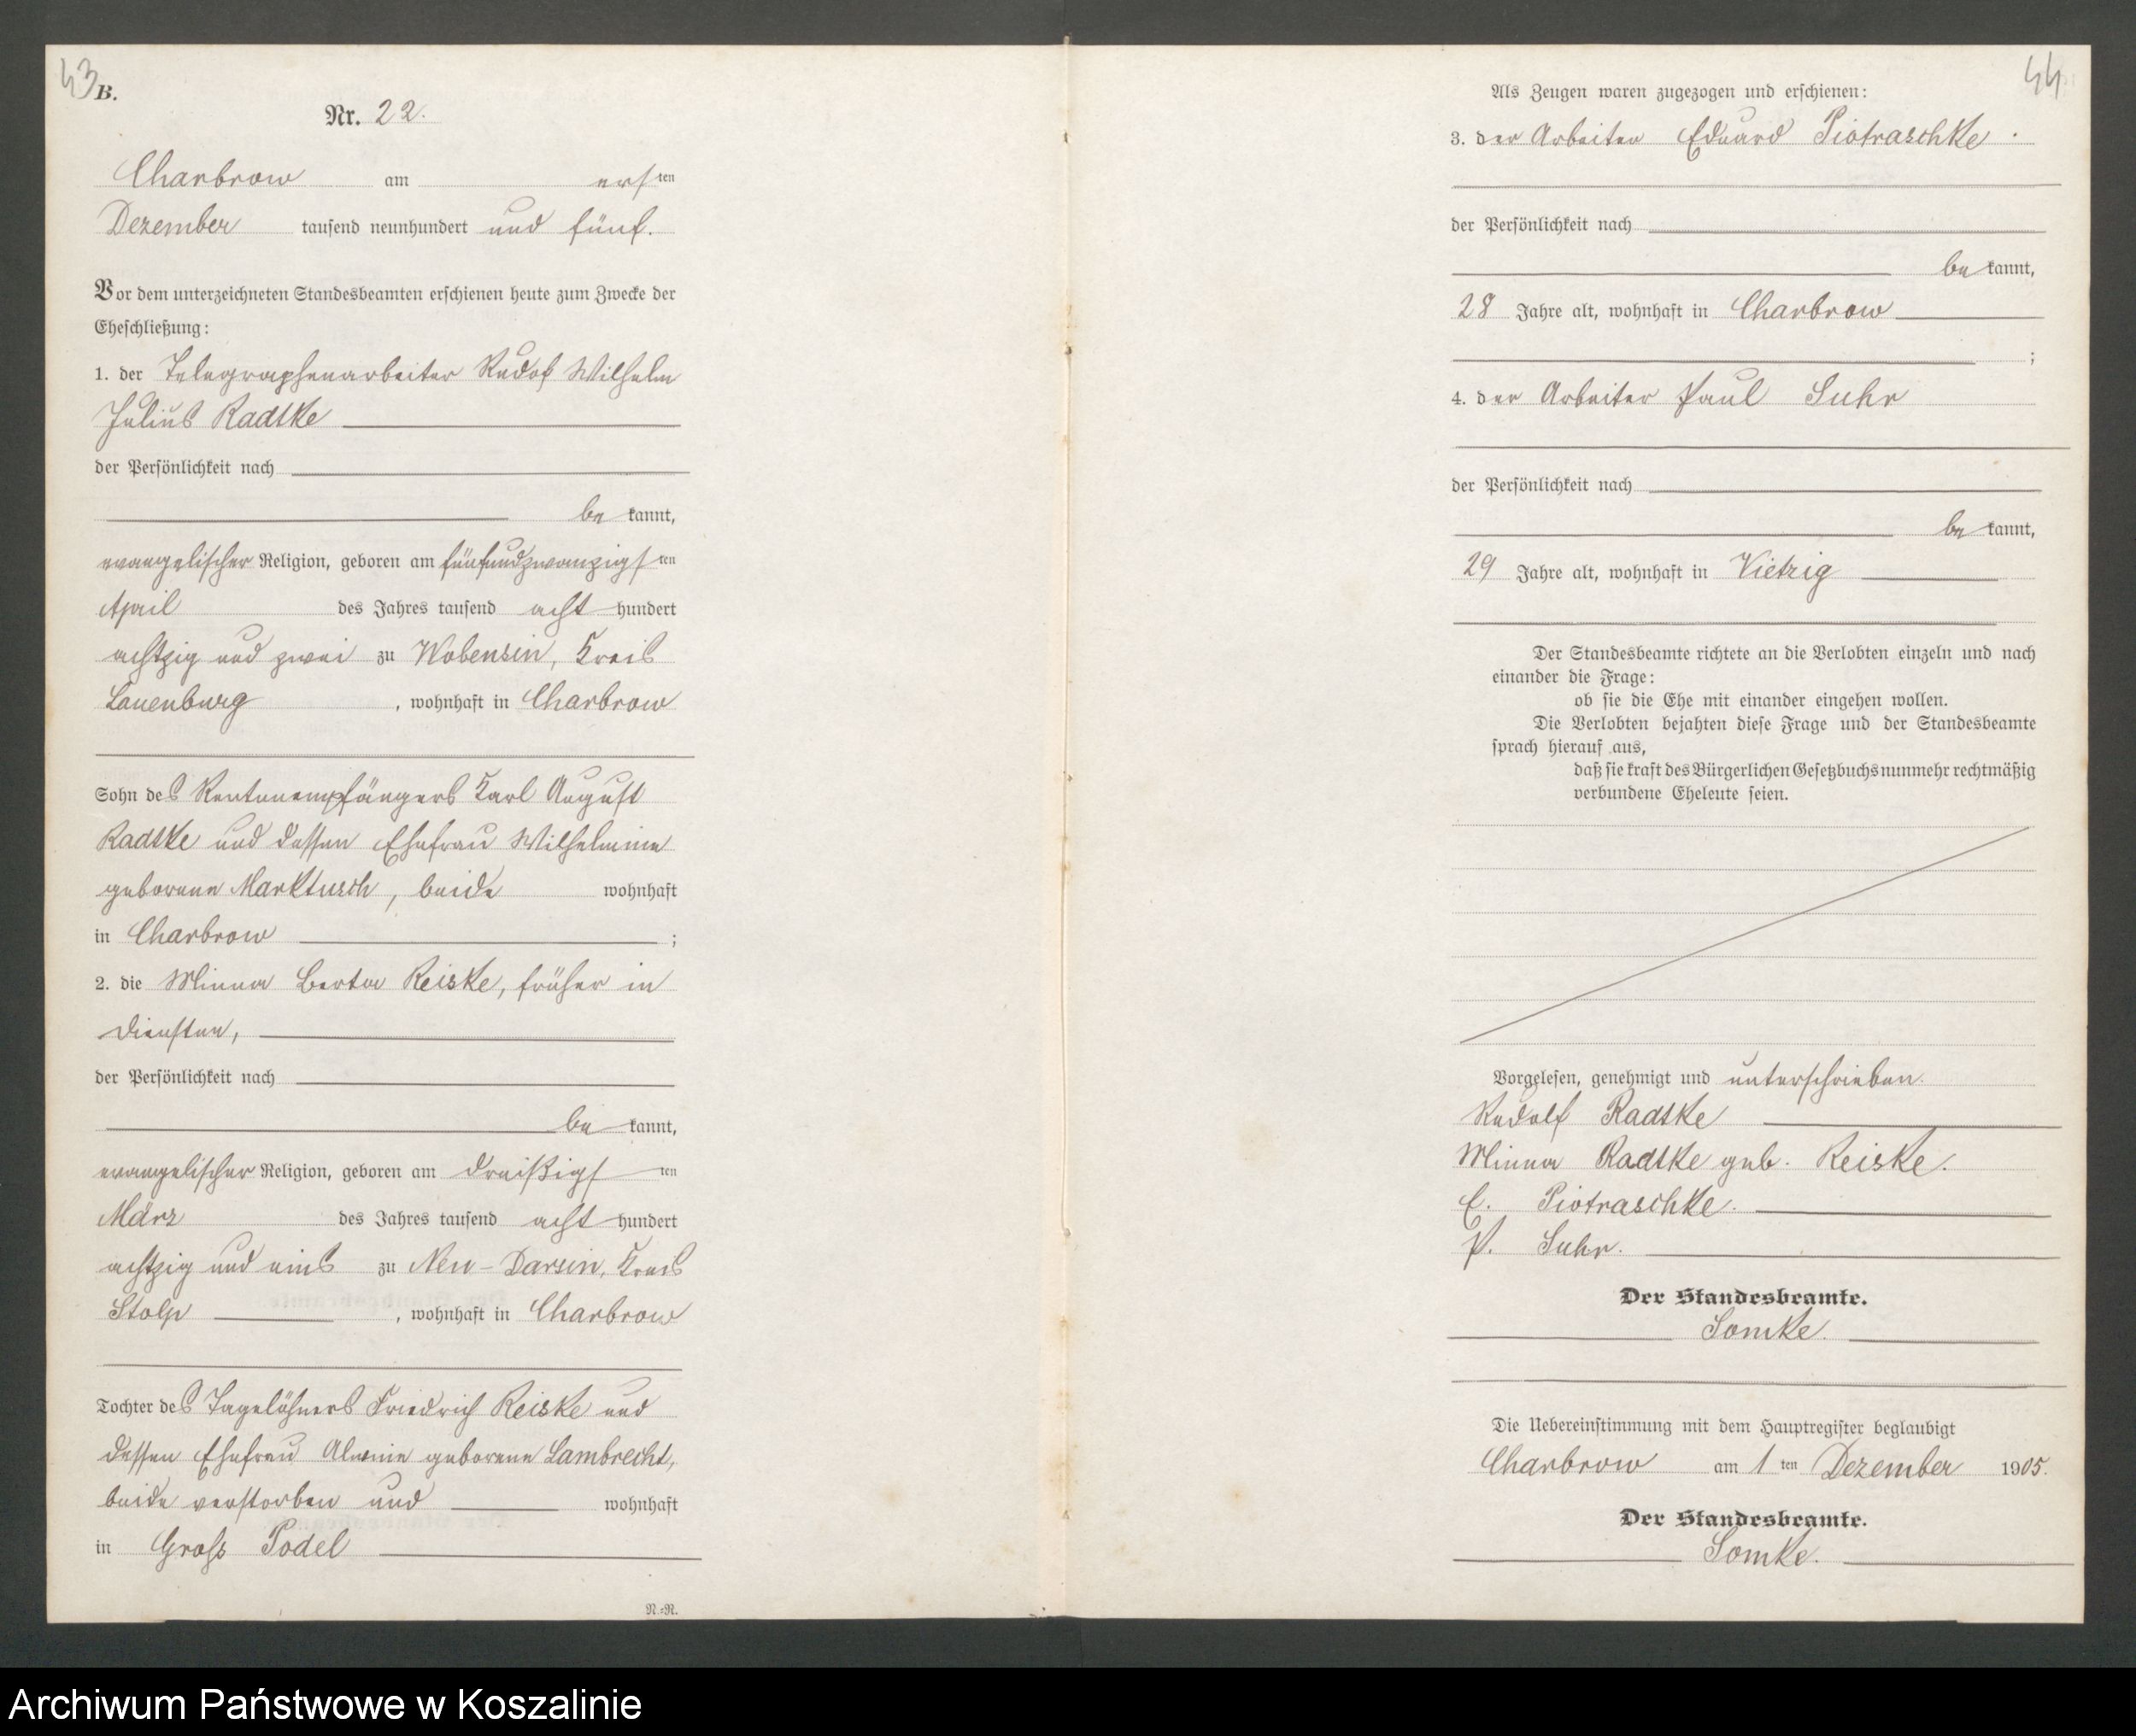 43
B.
Nr. 22.
Charbrow am ersten
Dezember tausend neunhundert und fünf.
Vor dem unterzeichneten Standesbeamten erschienen heute zum Zwecke der
Eheschließung:
1. der Telegraphenarbeiter Rudof Wilhelm
Julius Radtke
der Persönlichkeit nach
be kannt,
evangelischer Religion, geboren am fünfundzwanzigsten
April des Jahres tausend acht hundert
achtzig und zwei zu Wobensin, Kreis
Lauenburg, wohnhaft in Charbrow
Sohn des Rentenempfängers Karl August
Radtke und dessen Ehefrau Wilhelmine
geborene Marktusch, beide wohnhaft
in Charbrow ;
2. die Minna Berta Reiske, früher in
Diensten,
der Persönlichkeit nach
be kannt,
evangelischer Religion, geboren am dreißigsten
März des Jahres tausend acht hundert
achtzig und eins zu Neu-Darsin, Kreis
Stolp, wohnhaft in Charbrow
Tochter des Tagelöhners Friedrich Reiske und
dessen Ehefrau Alwine geborene Lambrecht,
beide verstorben und wohnhaft
in Gross Podel
N.-N.
44
Als Zeugen waren zugezogen und erschienen:
3. der Arbeiter Eduard Piotraschke.
der Persönlichkeit nach
be kannt,
28 Jahre alt, wohnhaft in Charbrow
;
4. der Arbeiter Paul Suhr
der Persönlichkeit nach
be kannt,
29 Jahre alt, wohnhaft in Vietzig
Der Standesbeamte richtete an die Verlobten einzeln und nach
einander die Frage:
ob sie die Ehe mit einander eingehen wollen.
Die Verlobten bejahten diese Frage und der Standesbeamte
sprach hierauf aus,
daß sie kraft des Bürgerlichen Gesetzbuchs nunmehr rechtmäßig
verbundene Eheleute seien.
Vorgelesen, genehmigt und unterschrieben.
Rudolf Radtke
Minna Radtke geb. Reiske.
E. Piotraschke.
P. Suhr.
Der Standesbeamte.
Somke.
Die Uebereinstimmung mit dem Hauptregister beglaubigt
Charbrow am 1ten Dezember 1905.
Der Standesbeamte.
Somke.
Archiwum Państwowe w Koszalinie